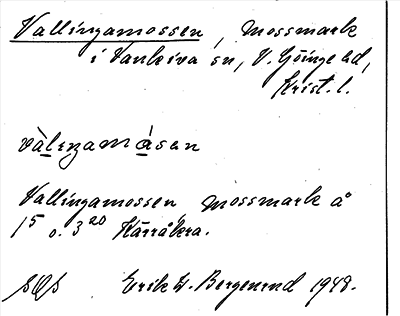 Vallingamossen, mossmark
i Vankiva sn, V. Göinge hd,
Krist. l.
vàlingamåsen
Vallingamossen, mossmark å
1⁵ o. 3²⁰ Kärråkra.
Erik W. Bergenrud 1948.